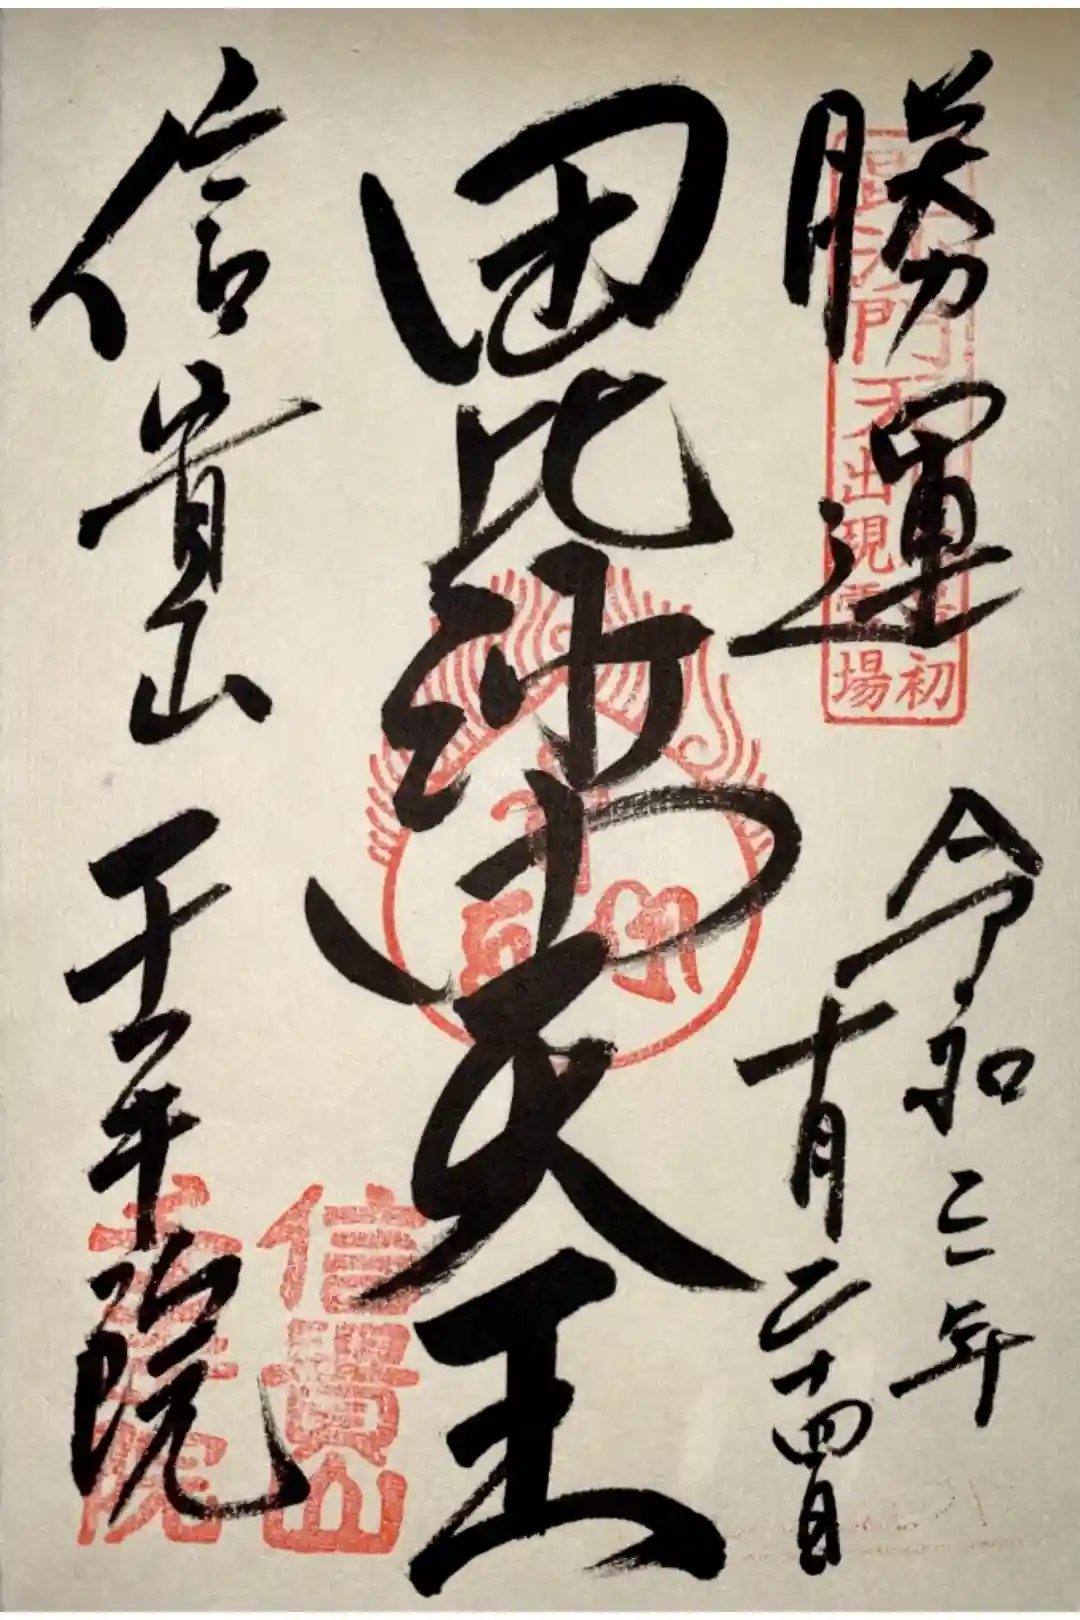 勝運
日本最初
毘沙門天出現霊場
令和三年
十月二十四日
毘沙門天王
信貴山 千手院
信貴山
千手院